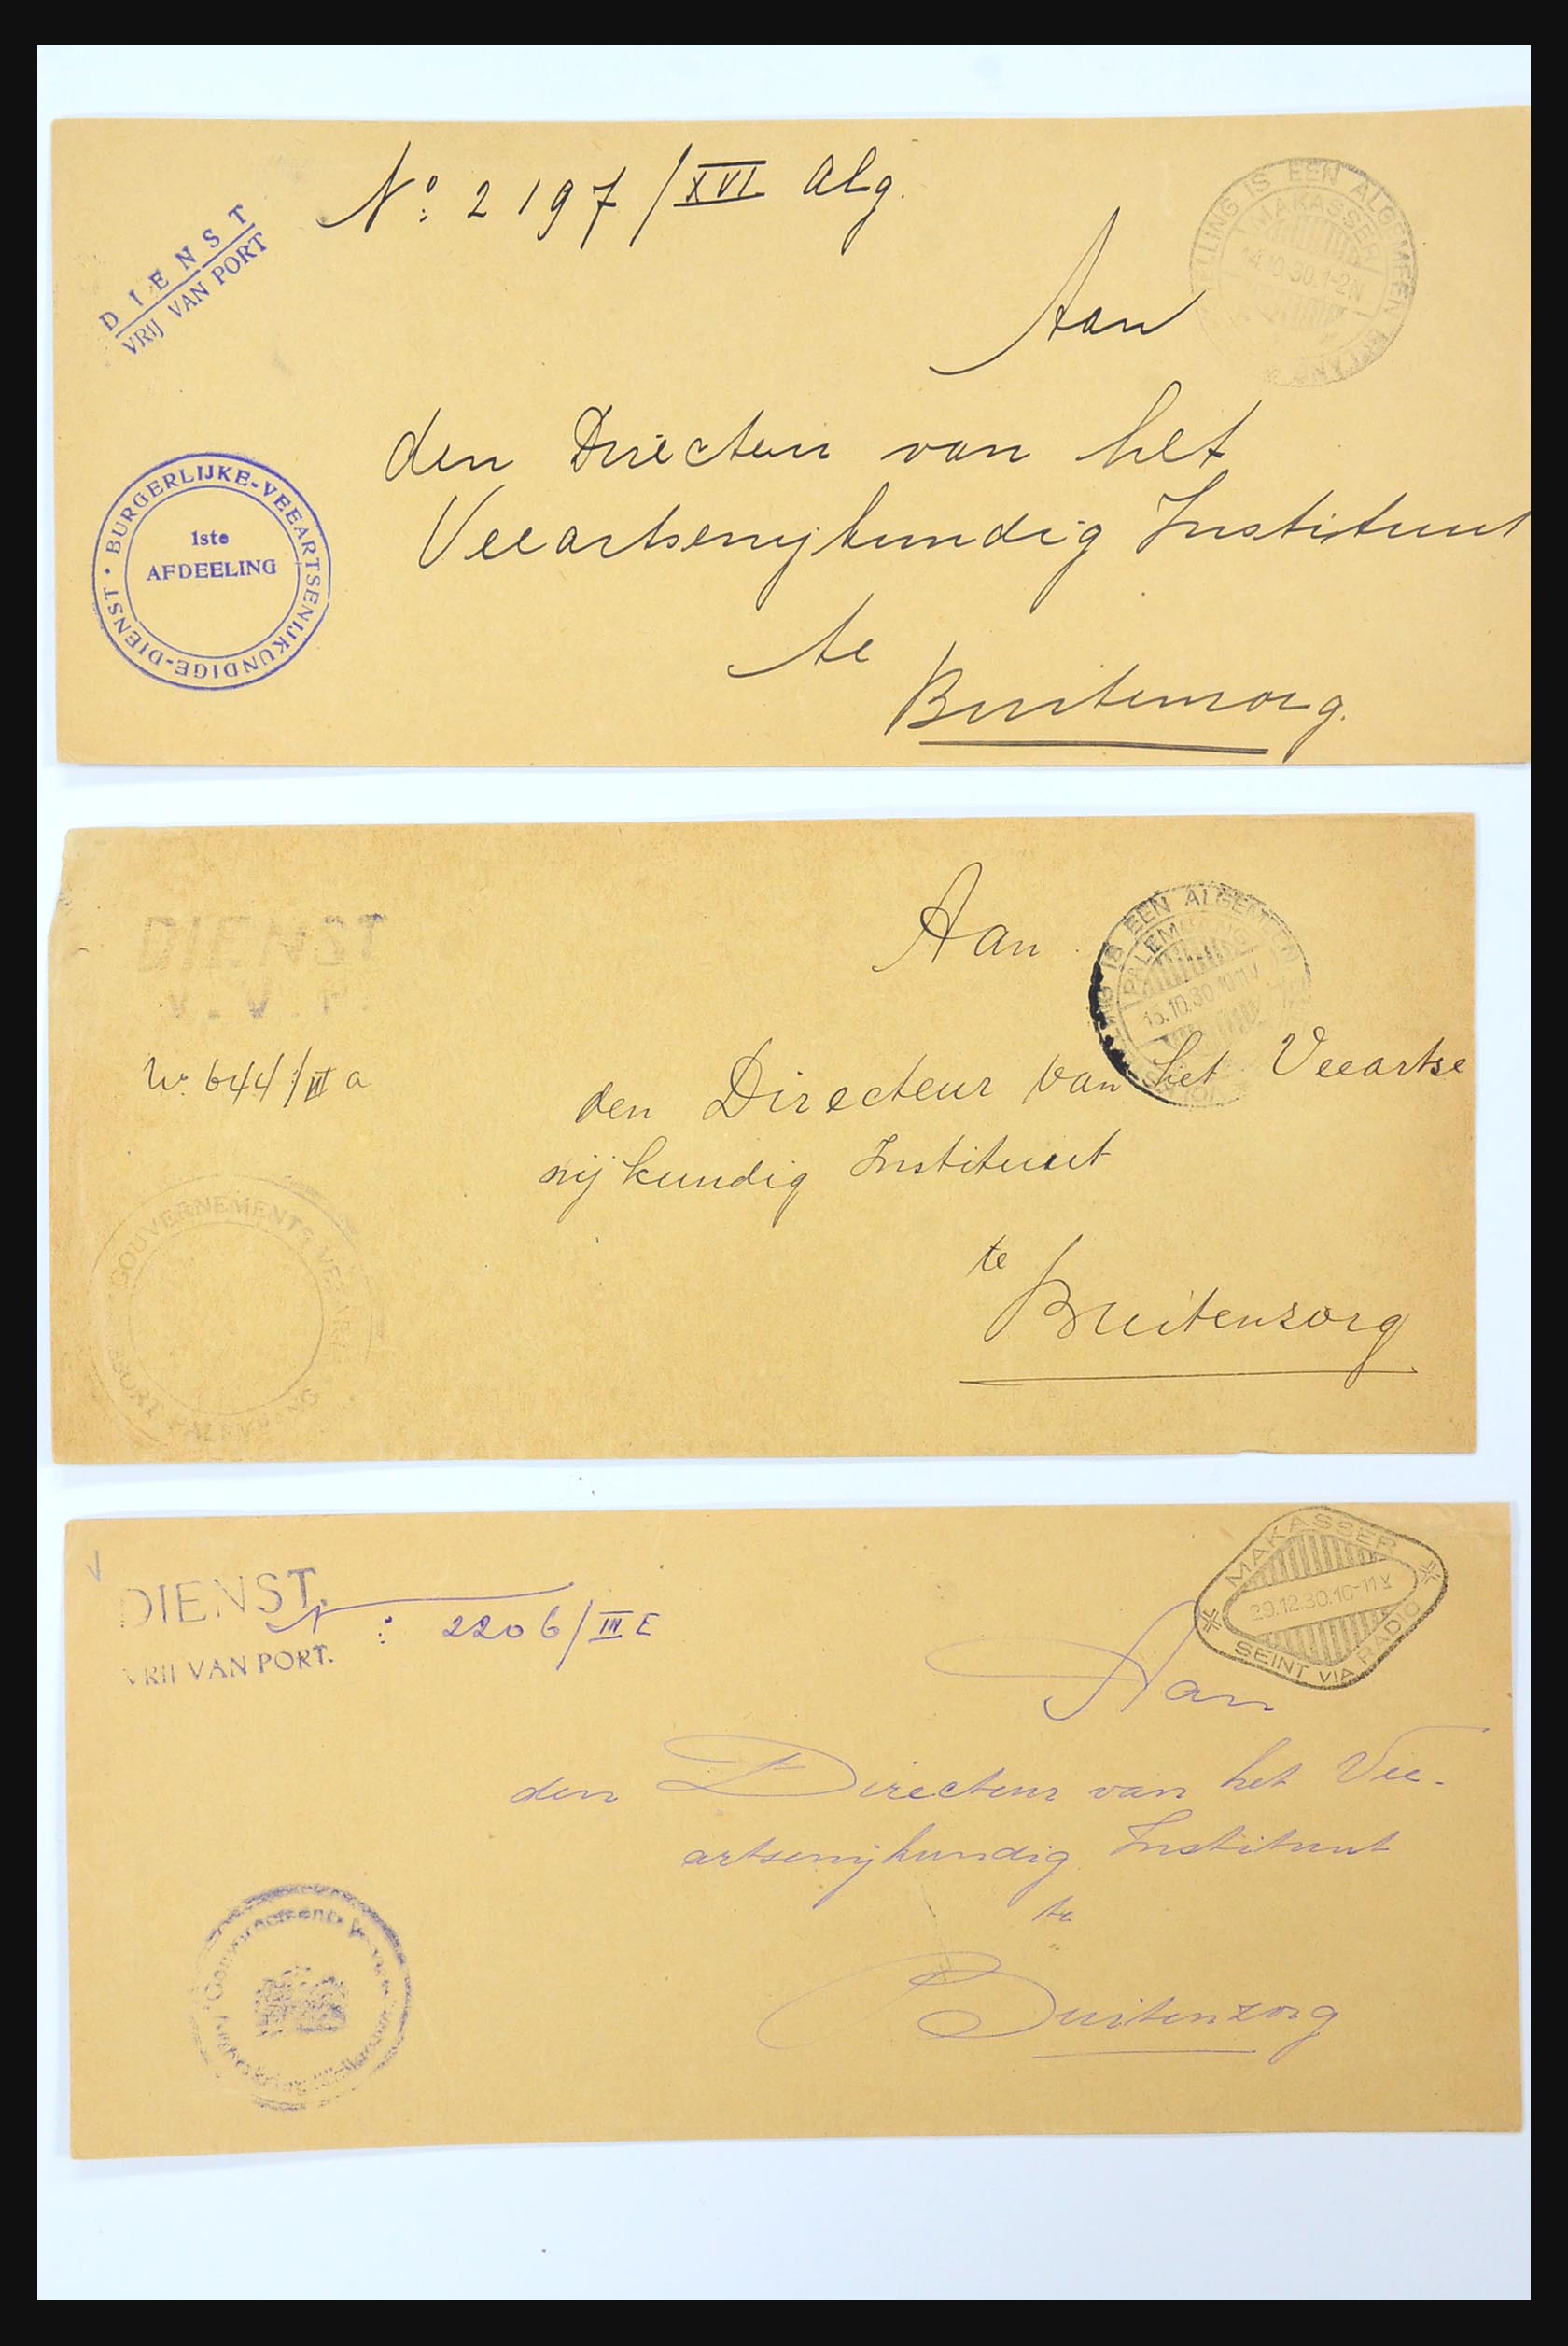 Nº: 2197/XVI Alg.
DIENST
VRIJ VAN PORT
ELLING IS EEN ALGEMEEN
MAKASSER
14.10.30.1-2N
Aan
den Directeur van het
Veeartsenijkundig Instituut
te
Buitenzorg.
BURGERLIJKE-VEEARTSENIJKUNDIGE-DIENST
1ste
AFDEELING
DIENST
V. V. P.
Nº 644/III a
IS EEN ALGEMEEN
PALEMBANG
15.10.30 10 11V
Aan
den Directeur van het Veeartse
nijkundig Instituut
te
Buitenzorg
GOUVERNEMENTS VEEARTS
PALEMBANG
DIENST.
VRIJ VAN PORT.
N: 2206/III E
MAKASSER
29.12.30.10-11V
SEINT VIA RADIO
Aan
den Directeur van het Vee-
artsenijkundig Instituut
te
Buitenzorg
Gouvernements